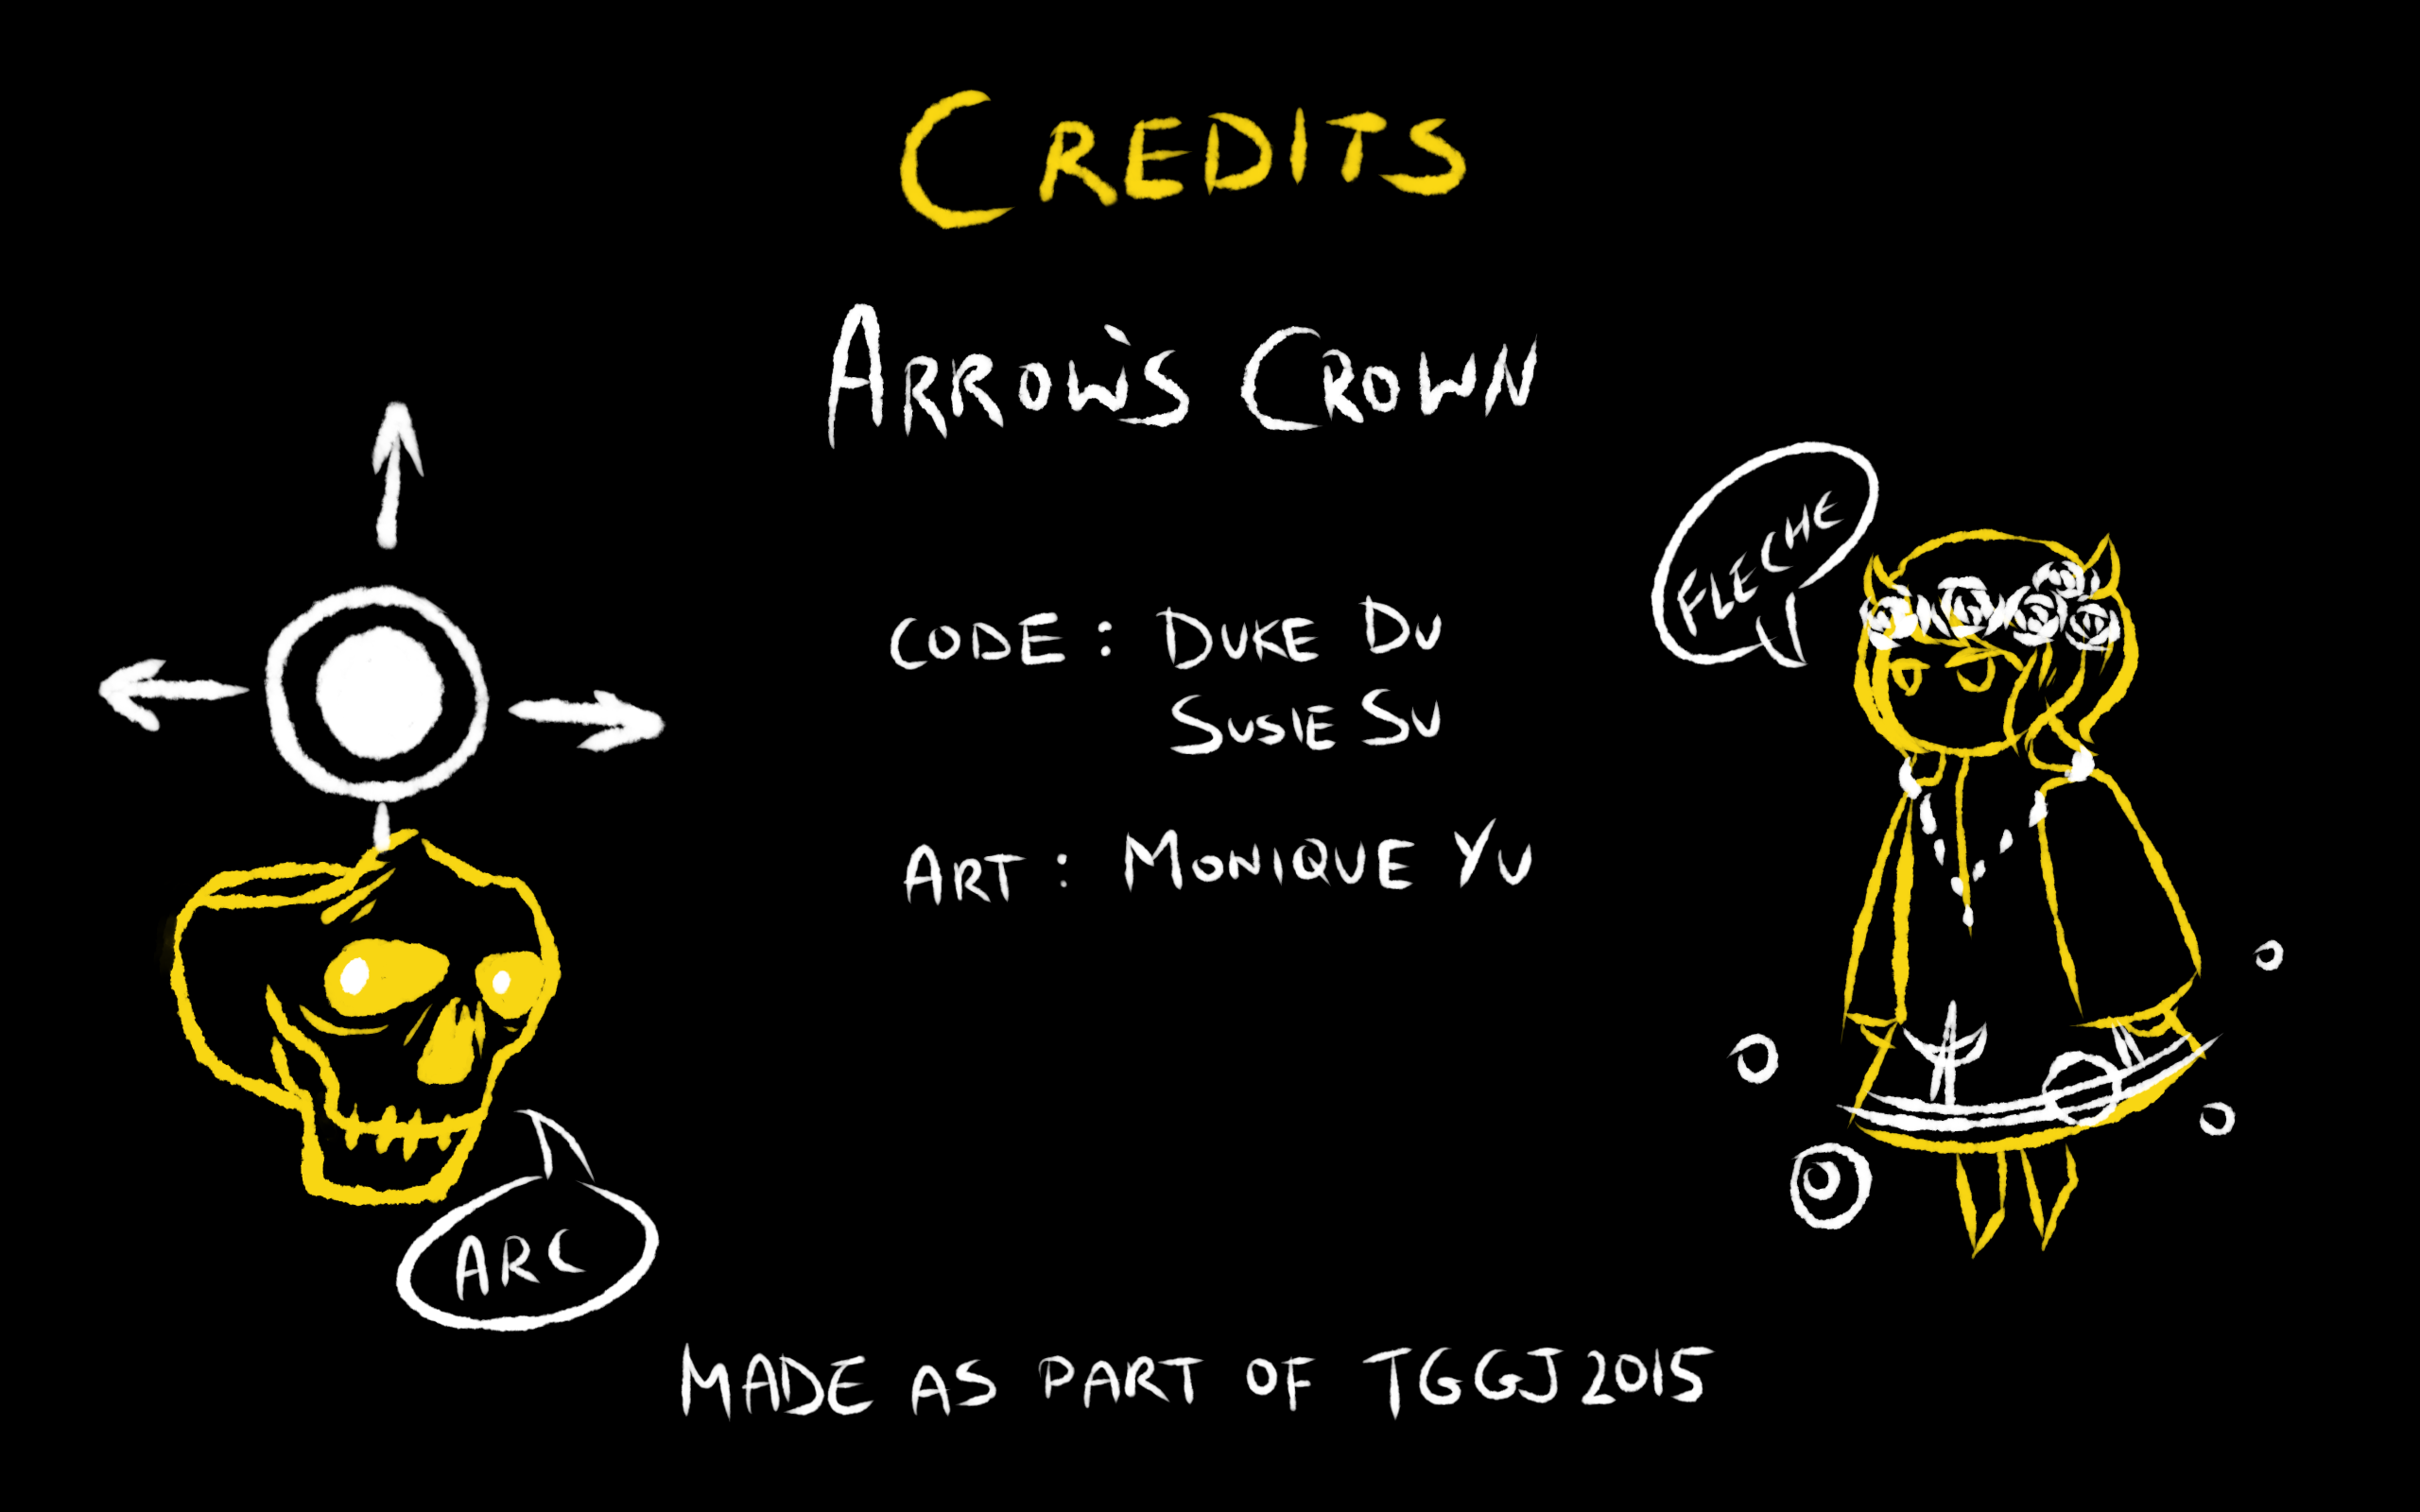 CREDITS
ARROW'S CROWN
FLECHE
CODE: DUKE DU
SUSIE SU
ART: MONIQUE YU
ARC
MADE AS PART OF TGGJ2015